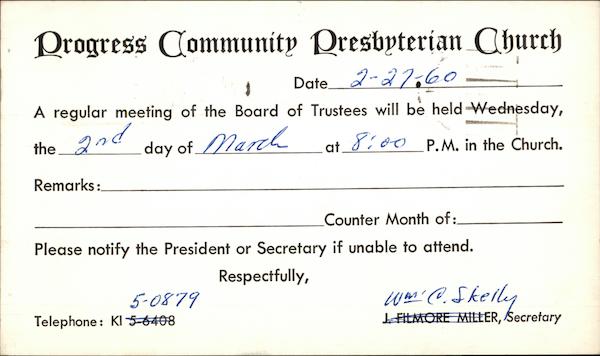 Progress Community Presbyterian Church
Date 2-27-60
A regular meeting of the Board of Trustees will be held Wednesday,
the 2nd day of March at 8:00 P.M. in the Church.
Remarks:
Counter Month of:
Please notify the President or Secretary if unable to attend.
Respectfully,
5-0879 Wm. C. Skelly
Telephone: KI 5-6408 J. FILMORE MILLER, Secretary